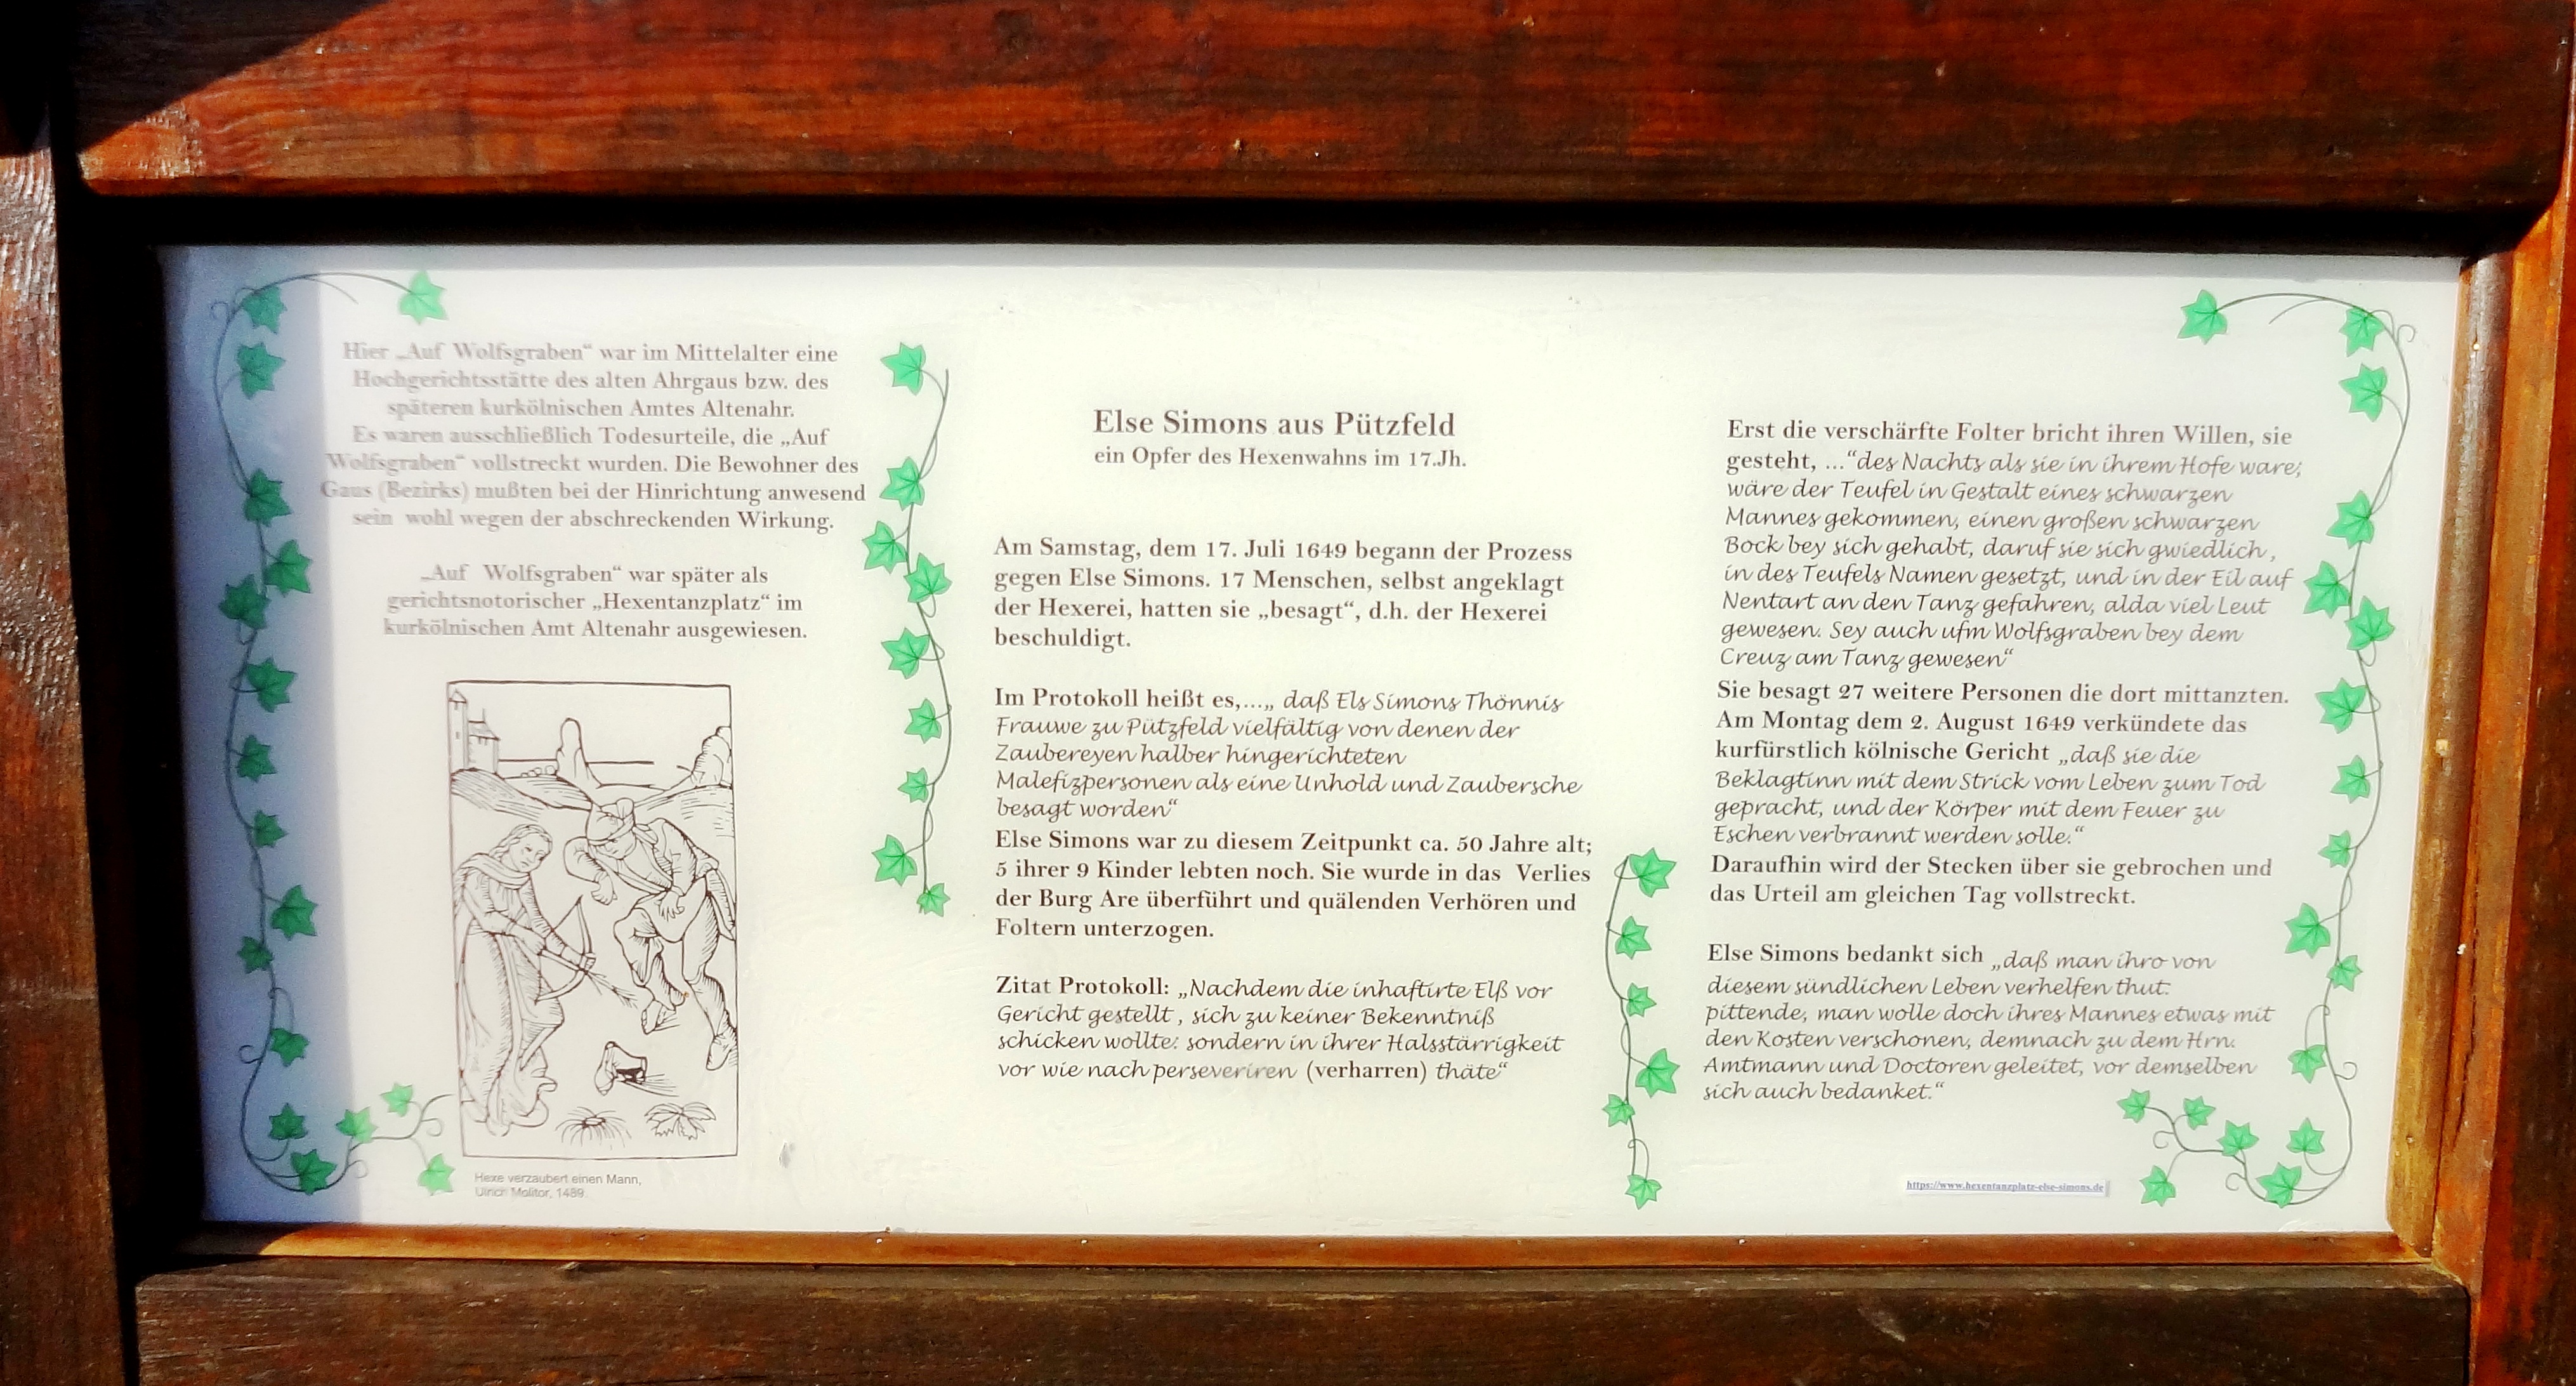 Hier „Auf Wolfsgraben“ war im Mittelalter eine
Hochgerichtsstätte des alten Ahrgaus bzw. des
späteren kurkölnischen Amtes Altenahr.
Es waren ausschließlich Todesurteile, die „Auf
Wolfsgraben“ vollstreckt wurden. Die Bewohner des
Gaus (Bezirks) mußten bei der Hinrichtung anwesend
sein wohl wegen der abschreckenden Wirkung.
„Auf Wolfsgraben“ war später als
gerichtsnotorischer „Hexentanzplatz“ im
kurkölnischen Amt Altenahr ausgewiesen.
Hexe verzaubert einen Mann,
Ulrich Molitor, 1489.
Else Simons aus Pützfeld
ein Opfer des Hexenwahns im 17.Jh.
Am Samstag, dem 17. Juli 1649 begann der Prozess
gegen Else Simons. 17 Menschen, selbst angeklagt
der Hexerei, hatten sie „besagt“, d.h. der Hexerei
beschuldigt.
Im Protokoll heißt es,...„ daß Els Simons Thönnis
Frauwe zu Pützfeld vielfältig von denen der
Zaubereyen halber hingerichteten
Malefizpersonen als eine Unhold und Zaubersche
besagt worden“
Else Simons war zu diesem Zeitpunkt ca. 50 Jahre alt;
5 ihrer 9 Kinder lebten noch. Sie wurde in das Verlies
der Burg Are überführt und quälenden Verhören und
Foltern unterzogen.
Zitat Protokoll: „Nachdem die inhaftirte Elß vor
Gericht gestellt , sich zu keiner Bekenntniß
schicken wollte: sondern in ihrer Halsstärrigkeit
vor wie nach perseveriren (verharren) thäte“
Erst die verschärfte Folter bricht ihren Willen, sie
gesteht, ...“des Nachts als sie in ihrem Hofe ware,
wäre der Teufel in Gestalt eines schwarzen
Mannes gekommen, einen großen schwarzen
Bock bey sich gehabt, daruf sie sich gwiedlich ,
in des Teufels Namen gesetzt, und in der Eil auf
Nentart an den Tanz gefahren, alda viel Leut
gewesen. Sey auch ufm Wolfsgraben bey dem
Creuz am Tanz gewesen“
Sie besagt 27 weitere Personen die dort mittanzten.
Am Montag dem 2. August 1649 verkündete das
kurfürstlich kölnische Gericht „daß sie die
Beklagtinn mit dem Strick vom Leben zum Tod
gepracht, und der Körper mit dem Feuer zu
Eschen verbrannt werden solle.“
Daraufhin wird der Stecken über sie gebrochen und
das Urteil am gleichen Tag vollstreckt.
Else Simons bedankt sich „daß man ihro von
diesem sündlichen Leben verhelfen thut:
pittende, man wolle doch ihres Mannes etwas mit
den Kosten verschonen, demnach zu dem Hrn.
Amtmann und Doctoren geleitet, vor demselben
sich auch bedanket.“
https://www.hexentanzplatz-else-simons.de